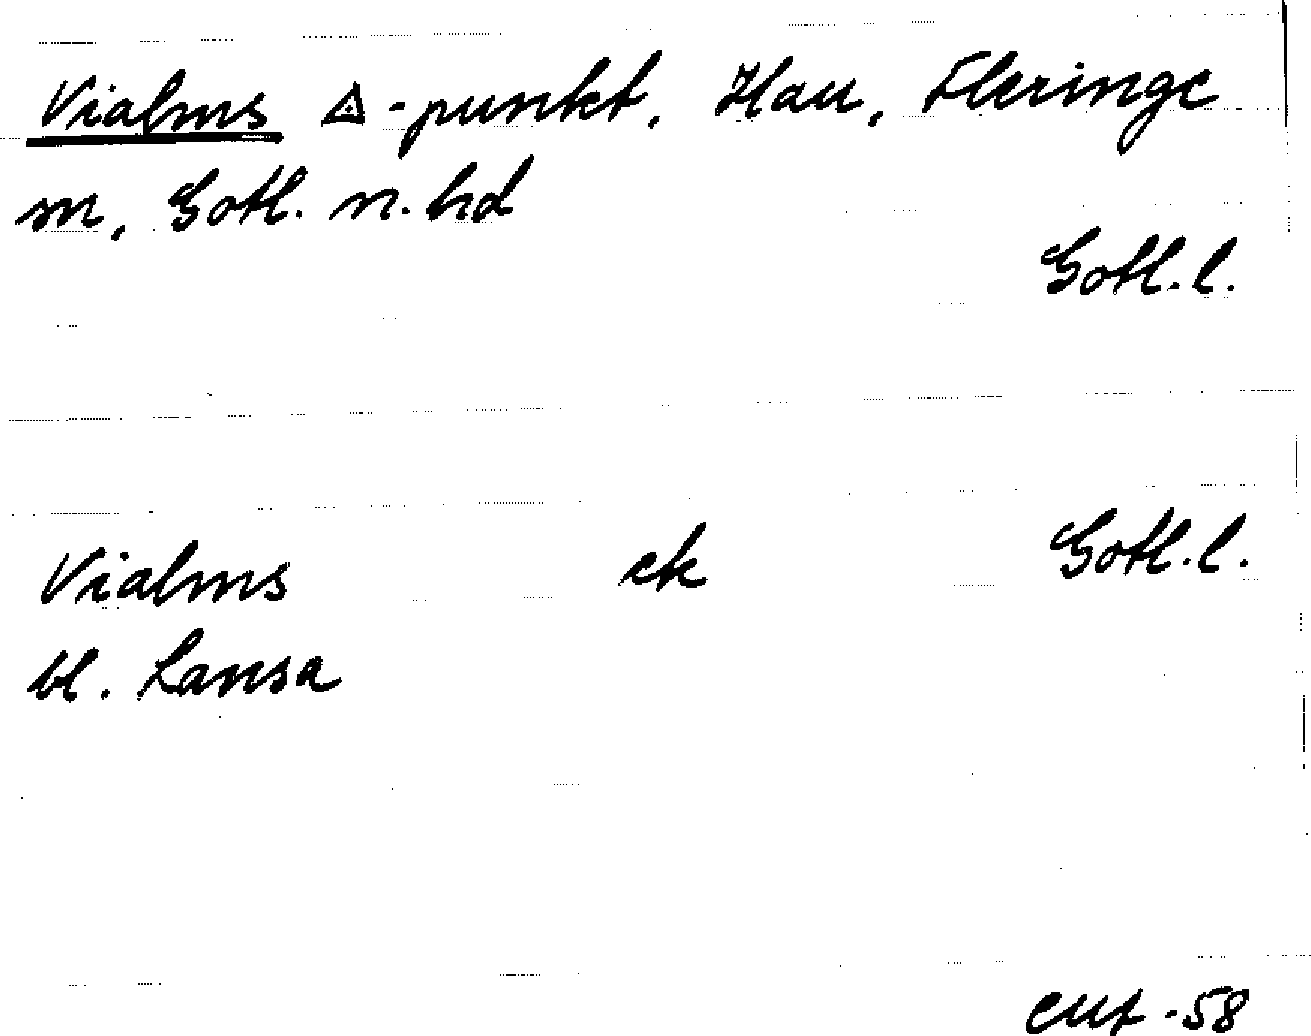 Vialms △-punkt, Hau, Fleringe
m, Gotl. n. hd
Gotl. l.
Vialms ek Gotl. l.
bl. Lansa
-58